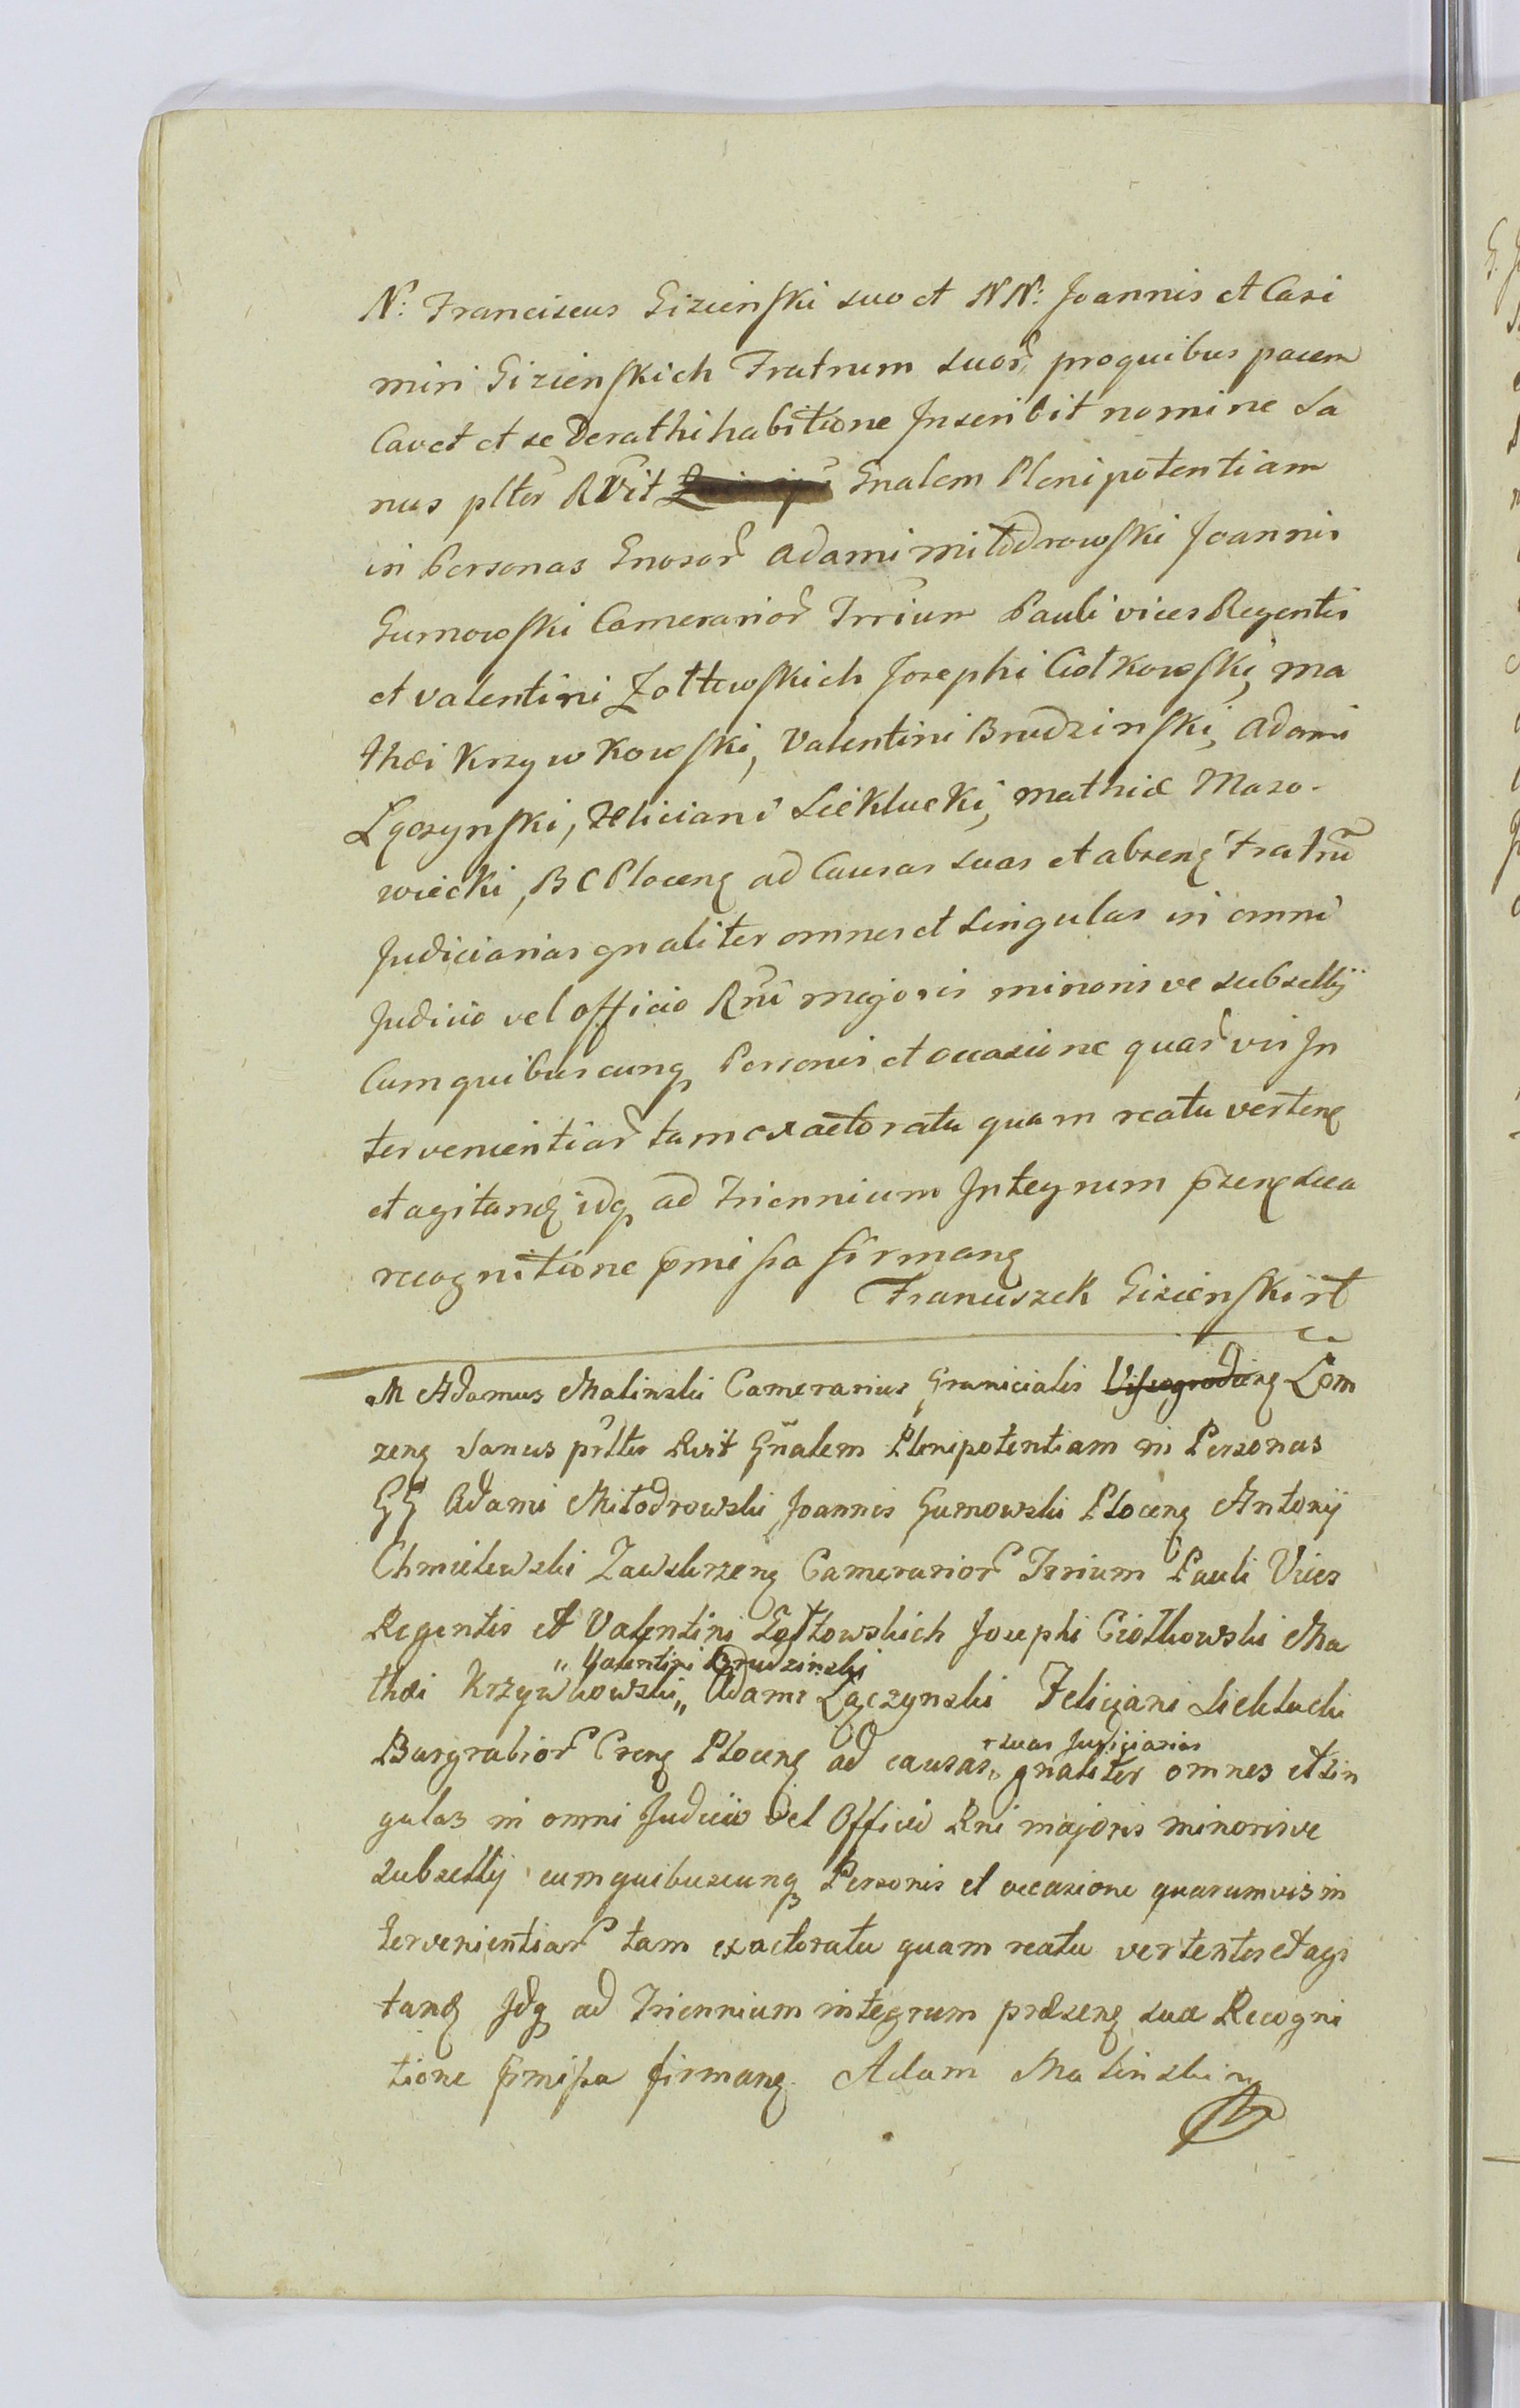 N. Franciscus Gizienski suo et NN: Joannis et Casi
miri Gizienskich Fratrum suor proquibus pacem
Cavet et se Derathihabitione Inscribit nomine Sa
nus plter RVit Gnalem Plenipotentiam
in Personas Gnosor Adami miłodrowski Joannis
Gumowski Camerarior Trrium Pauli vices Regentis
et valentini Zołtowskich Josephi Ciołkowski, ma
thæi Krzywkowski, Valentini Brudzinski, Adami
Lączynski, Feliciani Sieklucki, mathiæ Mazo-
wiecki, B C Plocenꝫ ad Causas suas et absenꝫ Fratru
Judiciarias gnaliter omnes et singulas in omni
Judicio vel officio Rni majoris minorisve subsellij
Cum quibuscunqꝫ Personis et occasione quar vis In
tervenientiar tam ex actoratu quam reatu vertenꝫ
et agitandꝫ idqꝫ ad Triennium Integrum pzenꝫ sua
recognitione pmissa firmanꝫ
Franciszek Gizienski rt
M Adamus Malinski Camerarius Granicialis Vissogrodienꝫ Łom
zenꝫ Sanus prlter Rvit Gnalem Plenipotentiam in Personas
GG Adami Miłodrowski Joannis Gumowski Plocenꝫ Antonij
Chmielewski Zawskrzenꝫ Camerarior Trrium Pauli Vices
Regentis et Valentini Zołtowskich Josephi Ciołkowski Ma
„ Valentini Brudzinski
thæi Krzywkowski „ Adami Lączynski Feliciani Sieklucki
Burgrabior Crenꝫ Plocenꝫ ad causas „ gnaliter omnes et sin
suas Judiciarias
gulas in omni Judicio vel Officio Rni majoris minorisve
subsellij cum quibuscunqꝫ Personis et occasione quarumvis in
tervenientiar tam ex actoratu quam reatu vertentes et agi
tandꝫ Idqꝫ ad Triennium integrum præsenꝫ sua Recogni
tione pmissa firmanꝫ. Adam Malinski